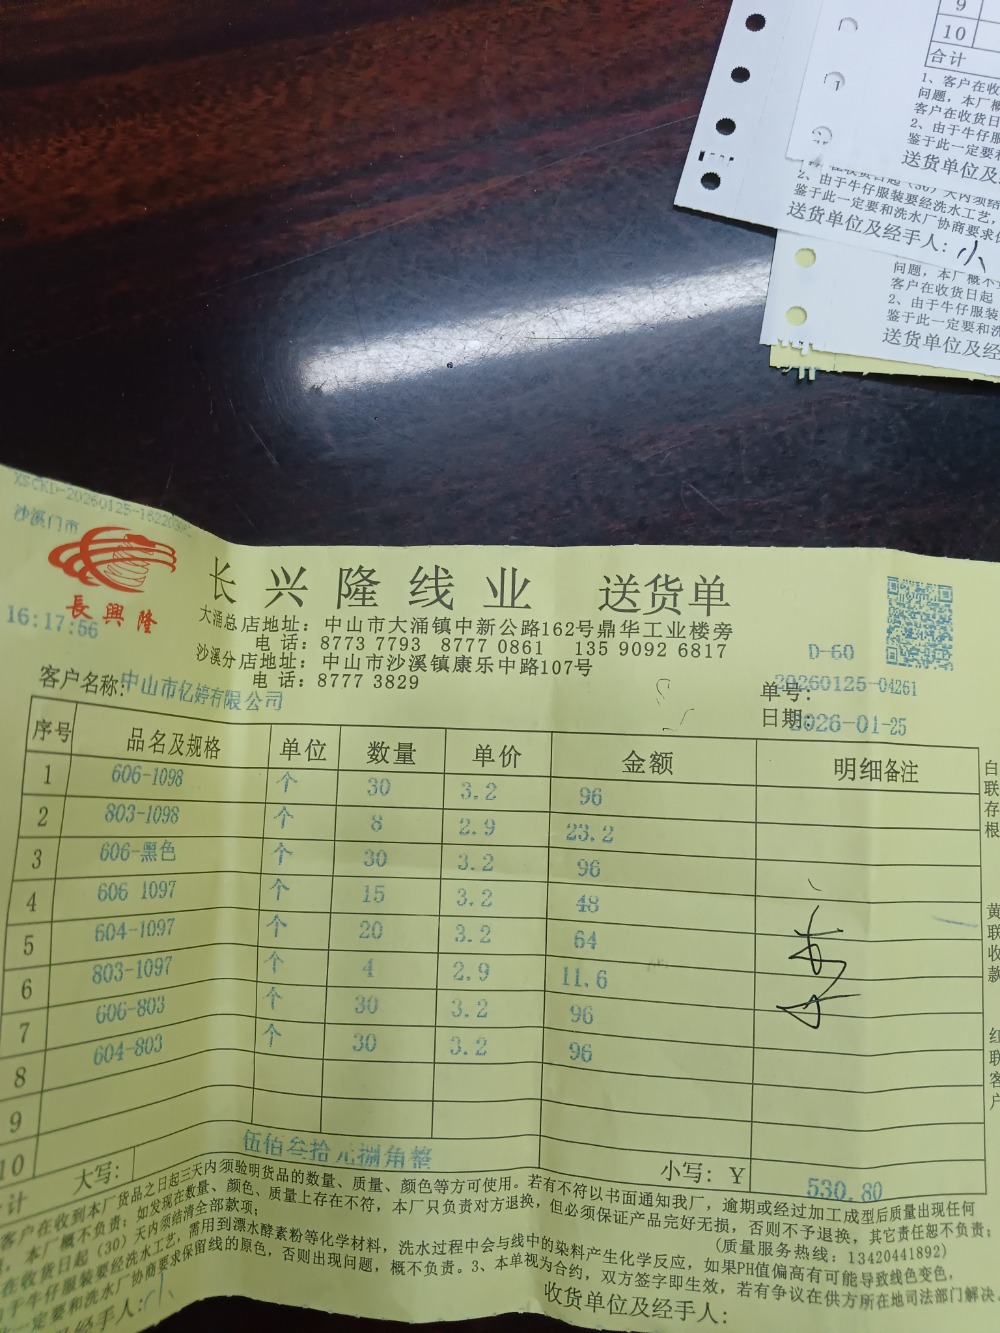 9
10
合计
1、客户在收
问题，本厂概
客户在收货日
2、由于牛仔服
鉴于此一定要和
送货单位及
2、由于牛仔服装要经洗水工艺，
鉴于此一定要和洗水厂协商要求保
送货单位及经手人：小
问题，本厂概不
客户在收货日起
2、由于牛仔服装
鉴于此一定要和洗
送货单位及经
沙溪门市
長興隆
16:17:56
长兴隆线业 送货单
大涌总店地址：中山市大涌镇中新公路162号鼎华工业楼旁
电话：8773 7793 8777 0861 135 9092 6817
沙溪分店地址：中山市沙溪镇康乐中路107号
电话：8777 3829
D-60
客户名称：中山市亿婷有限公司
单号：20260125-04261
日期：2026-01-25
序号 品名及规格 单位 数量 单价 金额 明细备注
1 606-1098 个 30 3.2 96
2 803-1098 个 8 2.9 23.2
3 606-黑色 个 30 3.2 96
4 606 1097 个 15 3.2 48
5 604-1097 个 20 3.2 64
6 803-1097 个 4 2.9 11.6
7 606-803 个 30 3.2 96
8 604-803 个 30 3.2 96
9
10
计 大写： 伍佰叁拾元捌角整 小写：￥ 530.80
白联存根
黄联收款
红联客户
客户在收到本厂货品之日起三天内须验明货品的数量、质量、颜色等方可使用。若有不符以书面通知我厂，逾期或经过加工成型后质量出现任何
，本厂概不负责；如发现在数量、颜色、质量上存在不符，本厂只负责对方退换，但必须保证产品完好无损，否则不予退换，其它责任恕不负责；
在收货日起（30）天内须结清全部款项； （质量服务热线：13420441892）
于牛仔服装要经洗水工艺，需用到漂水酵素粉等化学材料，洗水过程中会与线中的染料产生化学反应，如果PH值偏高有可能导致线色变色，
一定要和洗水厂协商要求保留线的原色，否则出现问题，概不负责。3、本单视为合约，双方签字即生效，若有争议在供方所在地司法部门解决。
及经手人：小
收货单位及经手人：